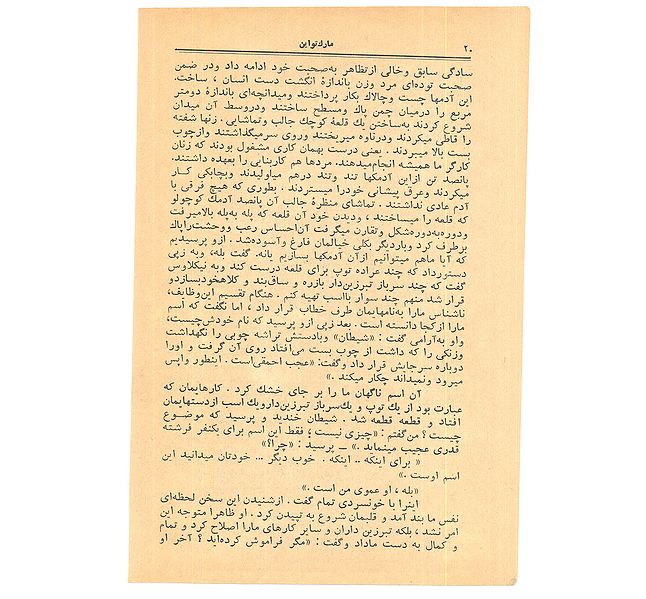 ۲۰
مارك‌تواین
سادگی سابق وخالی ازتظاهر به‌صحبت خود ادامه داد ودر ضمن
صحبت توده‌ای مرد وزن باندازهٔ انگشت دست انسان ، ساخت.
این آدمها چست وچالاك بکار پرداختند ومیدانچه‌ای باندازهٔ دومتر
مربع را درمیان چمن پاك ومسطح ساختند ودروسط آن میدان
شروع کردند به‌ساختن یك قلعهٔ کوچك جالب وتماشایی . زنها شفته
را قاطی میکردند ودرناوه میریختند وروی سرمیگذاشتند وازچوب
بست بالا میبردند . یعنی درست بهمان کاری مشغول بودند که زنان
کارگر ما همیشه انجام‌میدهند. مردها هم کاربنایی را بعهده داشتند.
پانصد تن ازاین آدمکها تند وتند درهم میلولیدند وبچابکی کـار
میکردند وعرق پیشانی خودرا میستردند . بطوری که هیچ فرقی با
آدم عادی نداشتند . تماشای منظرهٔ جالب آن پانصد آدمك کوچولو
که قلعه را میساختند ، ودیدن خود آن قلعه که پله به‌پله بالامیرفت
ودوره‌به‌دوره‌شکل وتقارن میگرفت آن‌احساس رعب ووحشت‌راپاك
برطرف کرد وباردیگر بکلی خیالمان فارغ وآسوده‌شد . ازو پرسیدیم
که آیا ماهم میتوانیم ازآن آدمکها بسازیم یانه. گفت بله، وبه زپی
دستورداد که چند عراده توپ برای قلعه درست کند وبه نیکلاوس
گفت که چند سرباز تبرزین‌دار بازره و ساق‌بند و کلاهخودبسازدو
قرار شد منهم چند سوار بااسب تهیه کنم . هنگام تقسیم این‌وظایف،
ناشناس مارا به‌نامهایمان طرف خطاب قرار داد ، اما نگفت که اسم
مارا ازکجا دانسته است . بعد زپی ازو پرسید که نام خودش‌چیست،
واو به‌آرامی گفت : «شیطان» وبادستش تراشه چوبی را نگهداشت
وزنکی را که داشت از چوب بست می‌افتاد روی آن گرفت و اورا
دوباره سرجایش قرار داد وگفت: «عجب احمقی‌است . اینطور واپس
میرود ونمیداند چکار میکند .»
آن اسم ناگهان ما را بر جای خشك کرد . کارهایمان که
عبارت بود از یك توپ و یك‌سرباز تبرزین‌دارویك اسب ازدستهایمان
افتاد و قطعه قطعه شد . شیطان خندید و پرسید که موضـوع
چیست ؟ من‌گفتم : «چیزی نیست ؛ فقط این اسم برای یکنفر فرشته
قدری عجیب مینماید .» ــ پرسید : «چرا؟»
« برای اینکه .. اینکه . خوب دیگر ... خودتان میدانید این
اسم اوست .»
«بله ، او عموی من است .»
اینرا با خونسردی تمام گفت . ازشنیدن این سخن لحظه‌ای
نفس ما بند آمد و قلبمان شروع به تپیدن کرد . او ظاهرا متوجه این
امر نشد ، بلکه تبرزین داران و سایر کارهای مارا اصلاح کرد و تمام
و کمال به دست ماداد وگفت : «مگر فراموش کرده‌اید ؟ آخر او